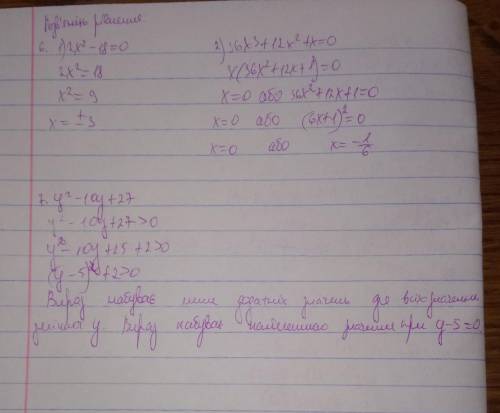 Розв'яжіть рівняння.
6. 1) 2x² - 18 = 0 2) 36x³ + 12x² + x = 0
2x² = 18 x(36x² + 12x + 1) = 0
x² = 9 x = 0 або 36x² + 12x + 1 = 0
x = ± 3 x = 0 або (6x+1)² = 0
x = 0 або x = -1/6
7. y² - 10y + 27
y² - 10y + 27 > 0
y² - 10y + 25 + 2 > 0
(y - 5)² + 2 > 0
Вираз набуває лише додатних значень для всіх значень
змінної y. Вираз набуває найменшого значення при y - 5 = 0